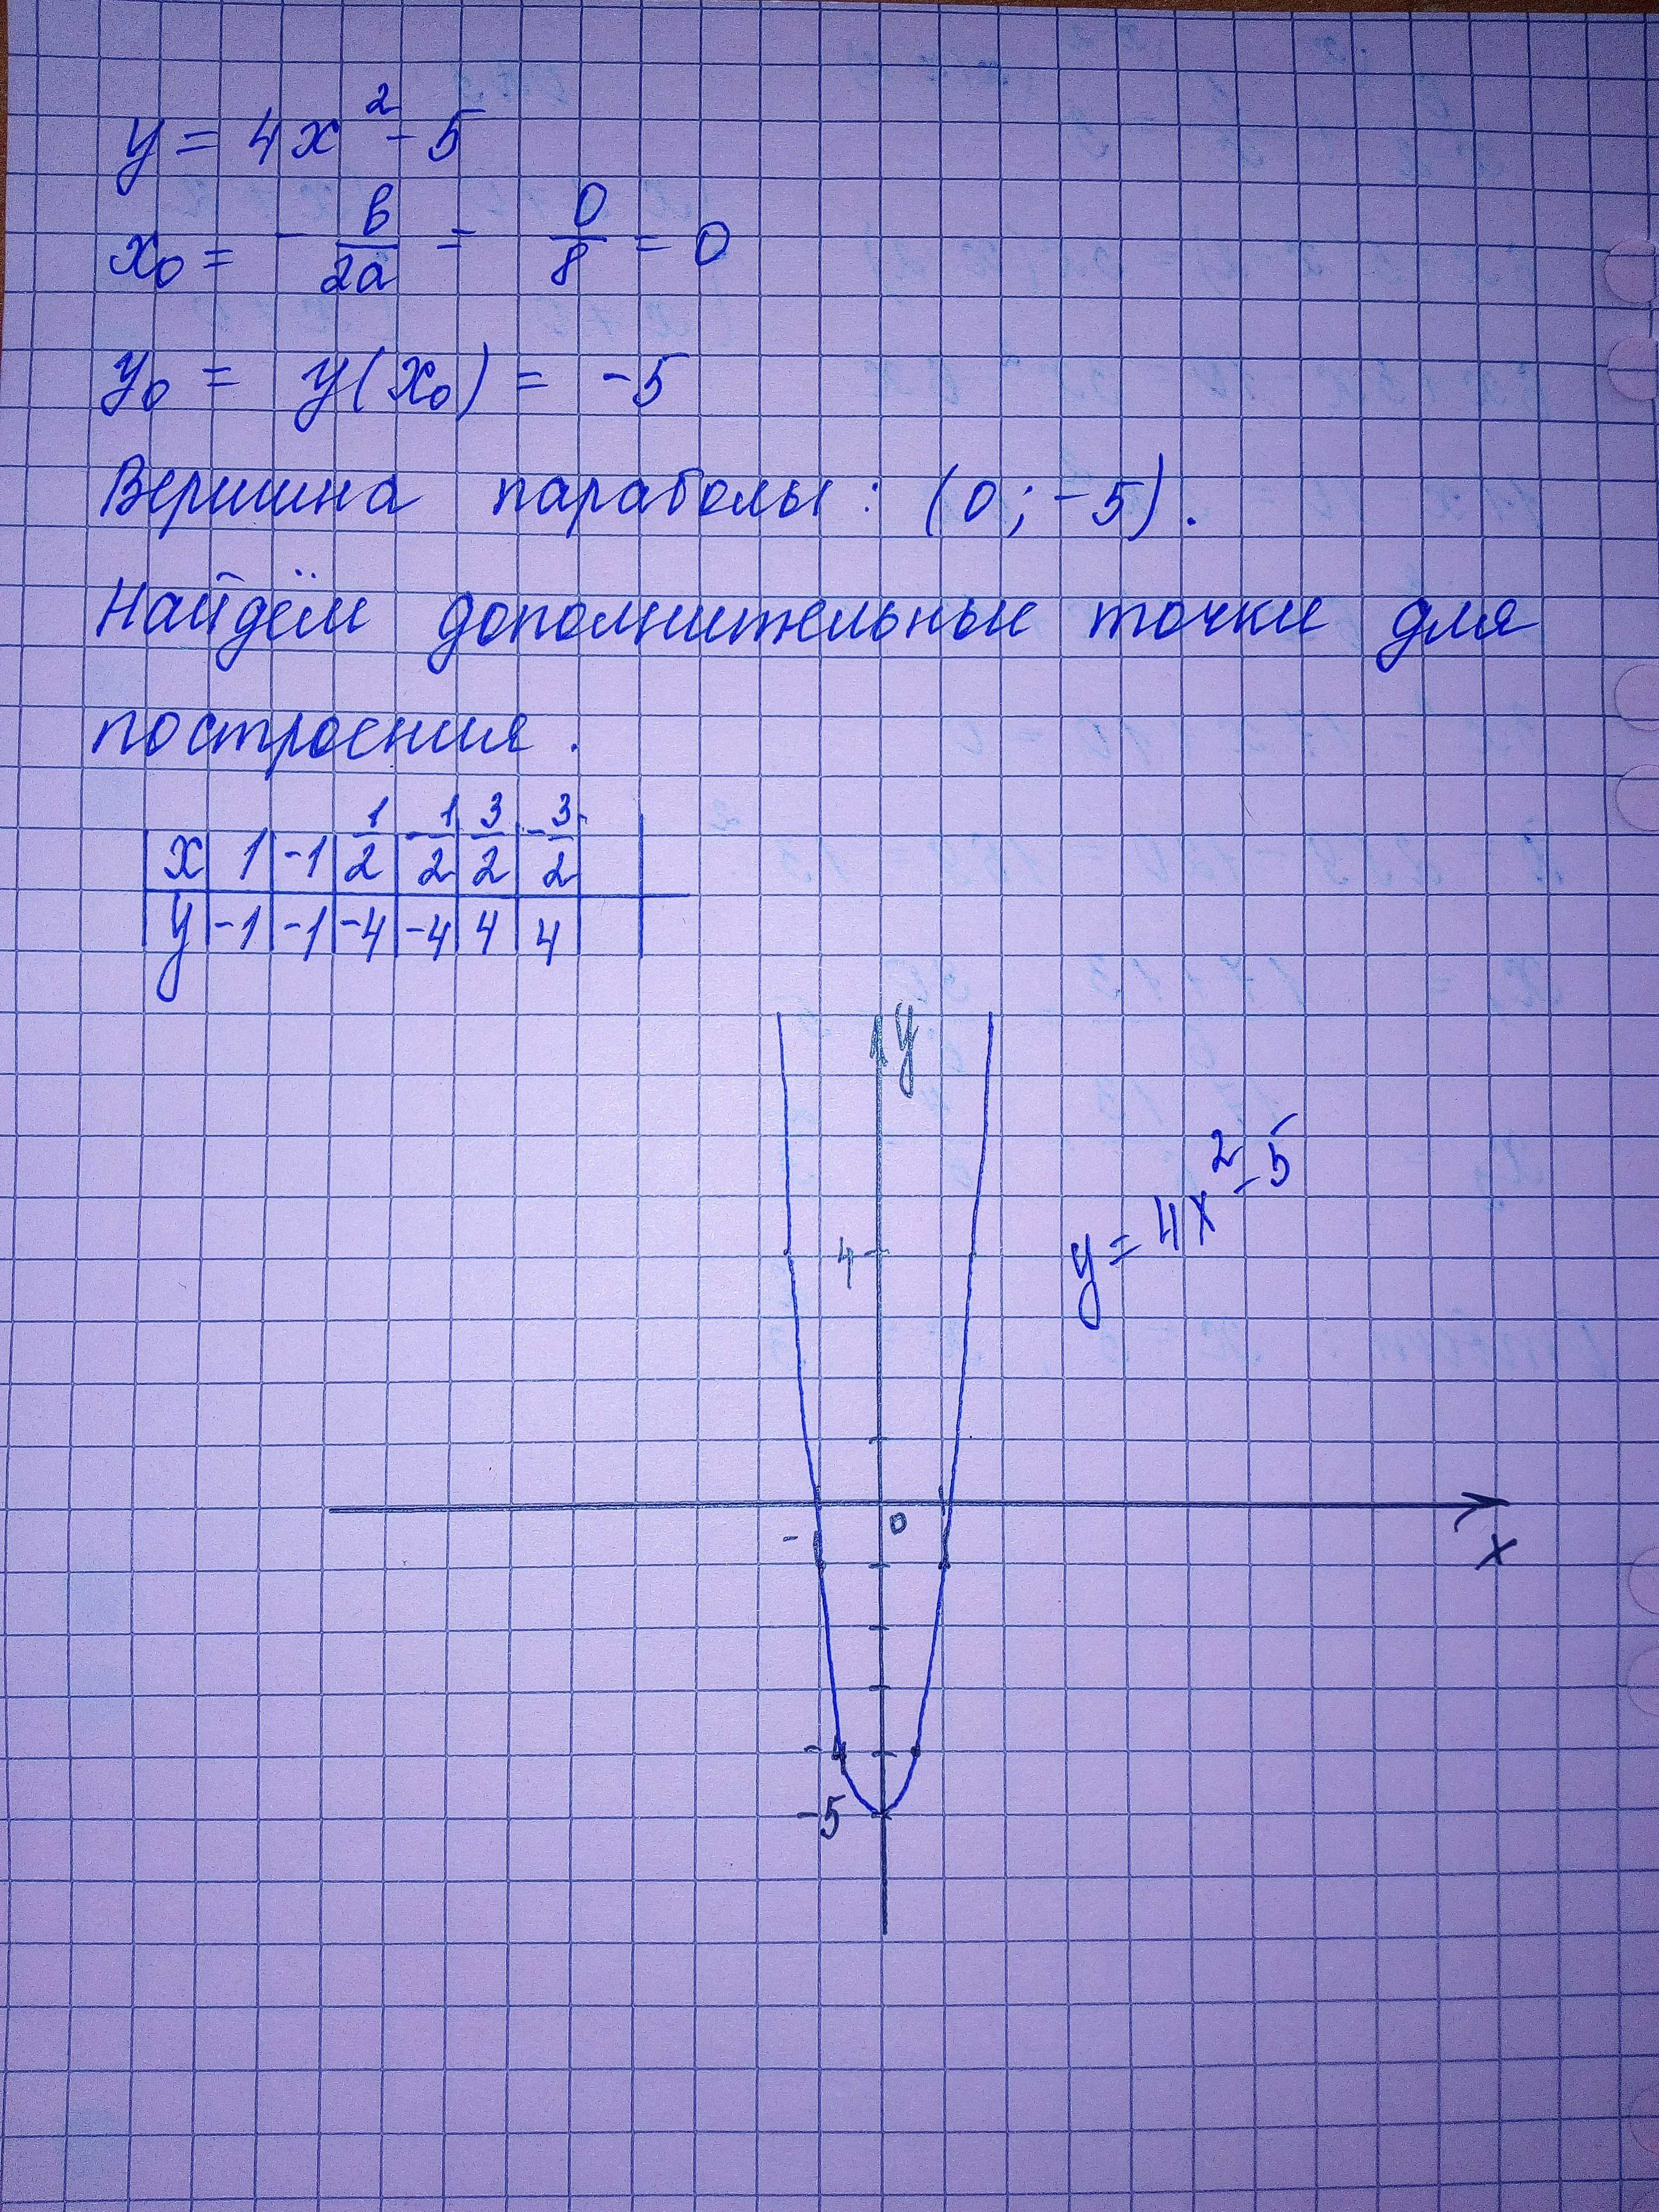 y = 4x² - 5
x₀ = - в/2a = 0/8 = 0
y₀ = y(x₀) = -5
Вершина параболы: (0; -5).
Найдём дополнительные точки для
построения.
x | 1 | -1 | 1/2 | -1/2 | 3/2 | -3/2
y | -1 | -1 | -4 | -4 | 4 | 4
y
y = 4x² - 5
4
0
-
x
-4
-5